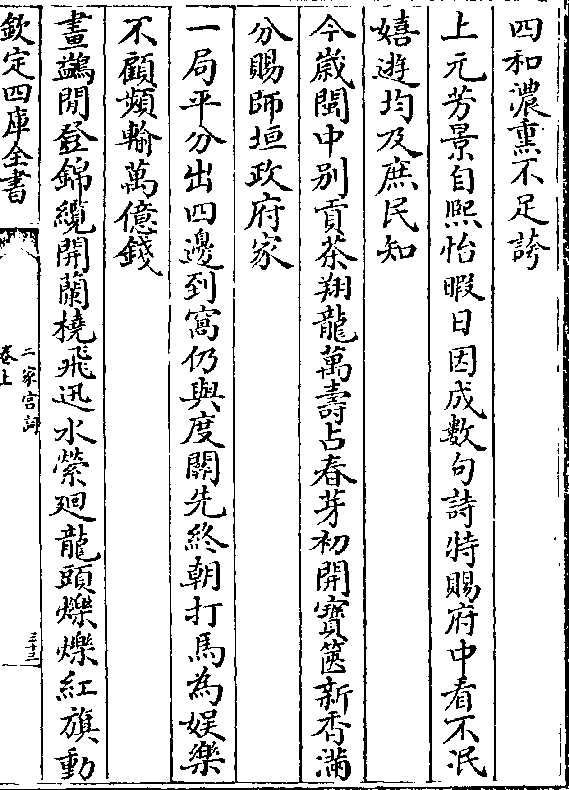 四和濃熏不足誇
上元芳景自熙怡暇日因成數句詩特賜府中看不泯
嬉遊均及庶民知
今歲閩中别貢茶翔龍萬壽占春芽初開寶篋新香滿
分賜師垣政府家
一局平分出四邊到窩仍與度關先終朝打馬為娱樂
不顧頻輸萬億錢
畫鷁閒登錦纜開蘭橈飛迅水縈廻龍頭爍爍紅旗動
欽定四庫全書
二家宫詞
卷上
三十三